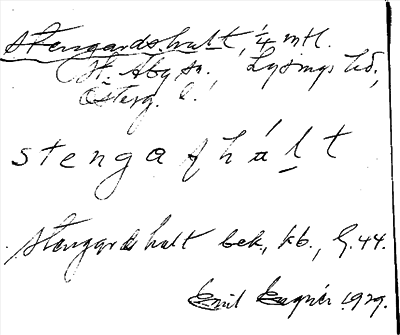 Stengardshult, 1/4 mtl.
St. Åby sn., Lysings hd,
Österg. l.
stengaɟhált
Stengardshult bek., kb., G. 44.
Emil Eugnér 1929.